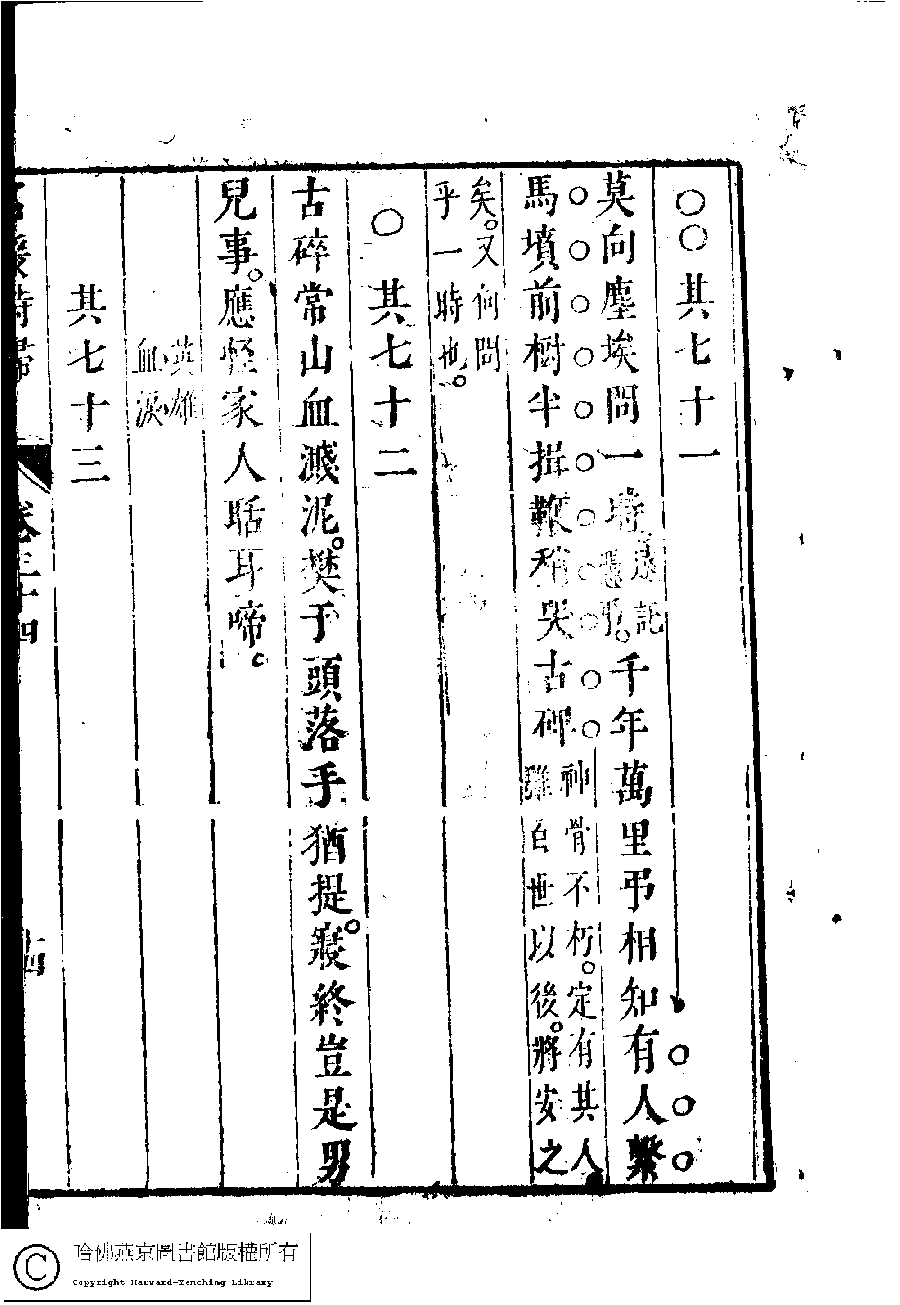 〇〇其七十一
莫向塵埃問一時託弔。千年萬里弔相知有人繫
馬墳前樹半揖鞭稍哭古碑神骨不朽。定有其人雖百世以後。將安之
矣。又何問乎一時也。
〇其七十二
古碎常山血濺泥。樊于頭落手猶提。㝡終豈是男
兒事。應怪家人聒耳啼。
英雄血淚
其七十三
名媛詩歸 卷三十四 十四
© 哈佛燕京圖書館版權所有
Copyright Harvard-Yenching Library